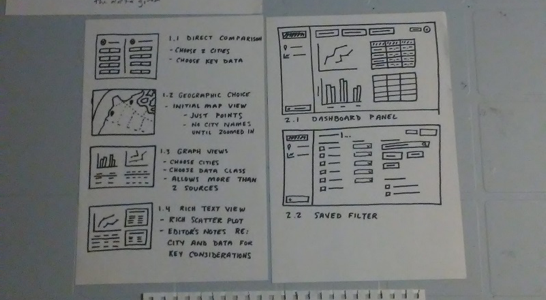 1.1 DIRECT COMPARISON
- CHOOSE 2 CITIES
- CHOOSE KEY DATA
1.2 GEOGRAPHIC CHOICE
- INITIAL MAP VIEW
- JUST POINTS
- NO CITY NAMES
UNTIL ZOOMED IN
1.3 GRAPH VIEWS
- CHOOSE CITIES
- CHOOSE DATA CLASS
- ALLOWS MORE THAN
2 SOURCES
1.4 RICH TEXT VIEW
- RICH SCATTER PLOT
- EDITOR'S NOTES RE:
CITY AND DATA FOR
KEY CONSIDERATIONS
2.1 DASHBOARD PANEL
2.2 SAVED FILTER